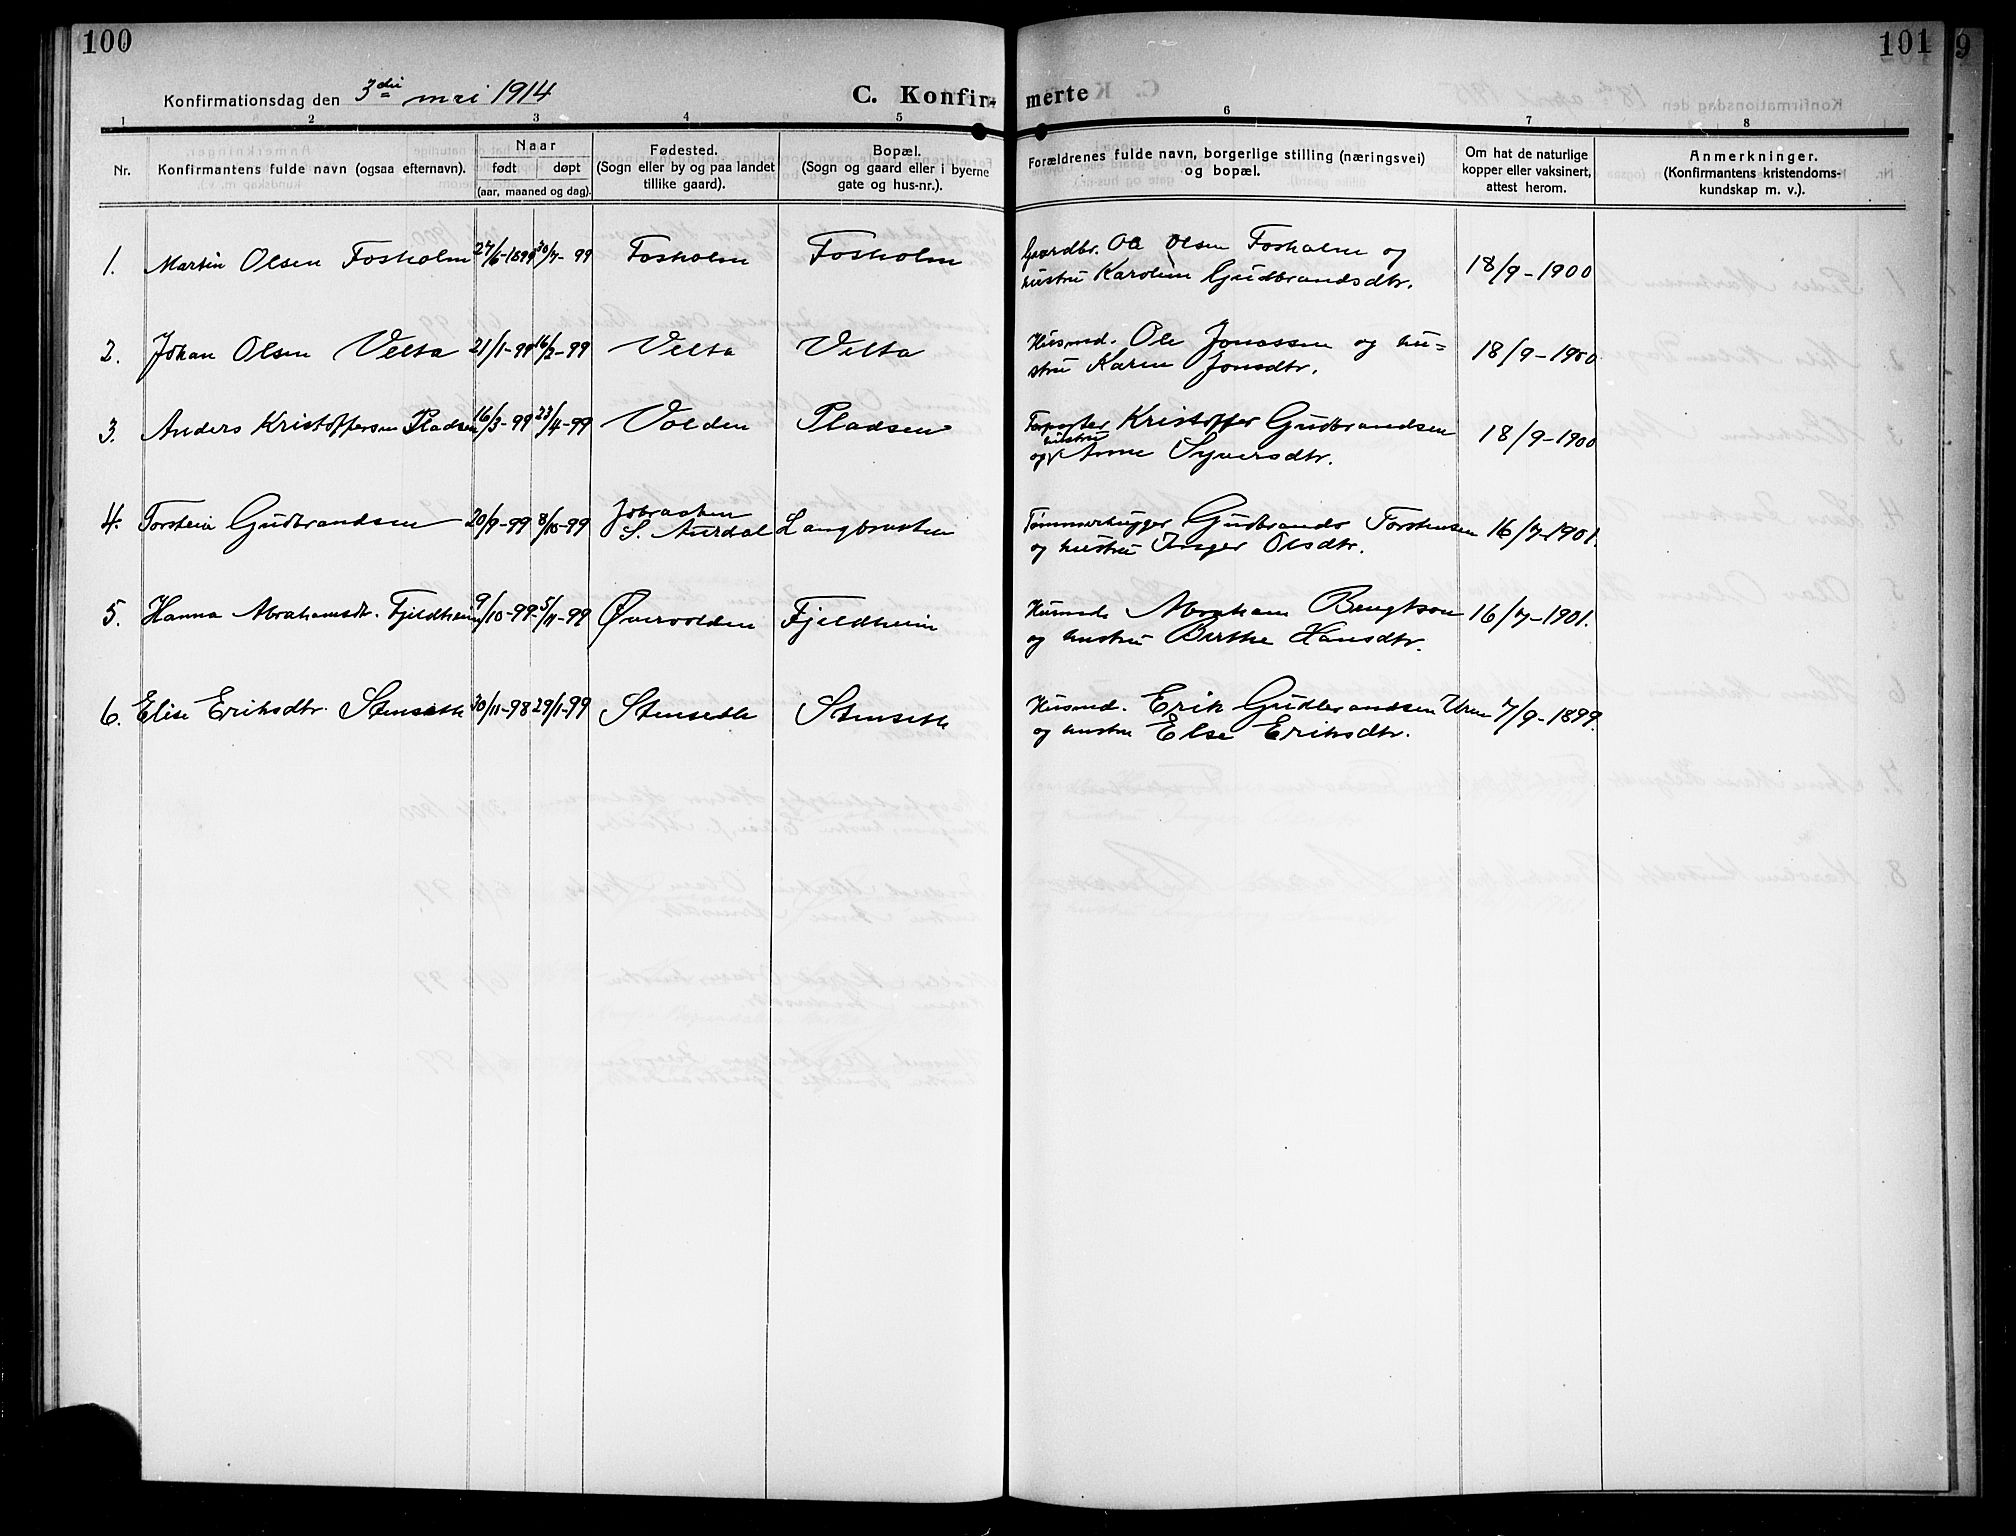 100
101
9
Konfirmationsdag den 3die mai 1914
C. Konfir- merte
1 2 3 4 5 6 7 8
Nr.
Konfirmantens fulde navn (ogsaa efternavn).
Naar
født døpt
(aar, maaned og dag).
Fødested.
(Sogn eller by og paa landet
tillike gaard).
Bopæl.
(Sogn og gaard eller i byerne
gate og hus-nr.).
Forældrenes fulde navn, borgerlige stilling (næringsvei)
og bopæl.
Om hat de naturlige
kopper eller vaksinert,
attest herom.
Anmerkninger.
(Konfirmantens kristendoms-
kundskap m. v.).
1. Martin Olsen Fosholm 27/6-1899 30/7-99 Fosholm Fosholm Gaardbr. Ole Olsen Fosholm og
hustru Karoline Gudbrandsdtr. 18/9-1900
2. Johan Olsen Velta 21/1-99 16/2-99 Velta Velta Husmd. Ole Jonassen og hu=
stru Karen Jonsdtr. 18/9-1900
3. Anders Kristoffersen Pladsen 16/3-99 23/4-99 Volden Pladsen Kristoffer Gudbrandsen
og hustru Anne Syversdtr. 18/9-1900
4. Torstein Gudbrandsen 20/9-99 8/10-99 Jobraaten
S. Aurdal Langbraaten Tømmerhugger Gudbrands Torstensen
og hustru Inger Olsdtr. 16/7-1901.
5. Hanna Abrahamsdt. Fjeldheim 9/10-99 5/11-99 Øvervolden Fjeldheim Husmd. Abraham Bengtson
og hustru Birthe Hansdtr. 16/7-1901.
6. Elise Eriksdtr. Stenseth 30/11-98 29/1-99 Stenseth Stenseth Husmd. Erik Gudbrandsen Uren
og hustru Else Eriksdtr. 7/9-1899.